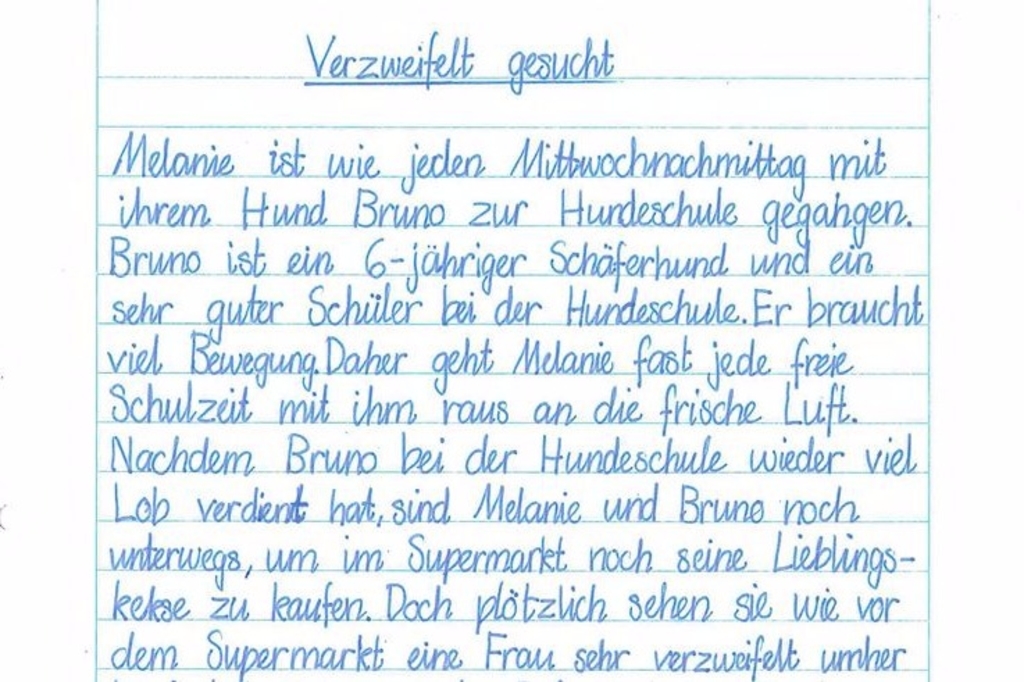 Verzweifelt gesucht
Melanie ist wie jeden Mittwochnachmittag mit
ihrem Hund Bruno zur Hundeschule gegangen.
Bruno ist ein 6-jähriger Schäferhund und ein
sehr guter Schüler bei der Hundeschule. Er braucht
viel Bewegung. Daher geht Melanie fast jede freie
Schulzeit mit ihm raus an die frische Luft.
Nachdem Bruno bei der Hundeschule wieder viel
Lob verdient hat, sind Melanie und Bruno noch
unterwegs, um im Supermarkt noch seine Lieblings-
kekse zu kaufen. Doch plötzlich sehen sie wie vor
dem Supermarkt eine Frau sehr verzweifelt umher